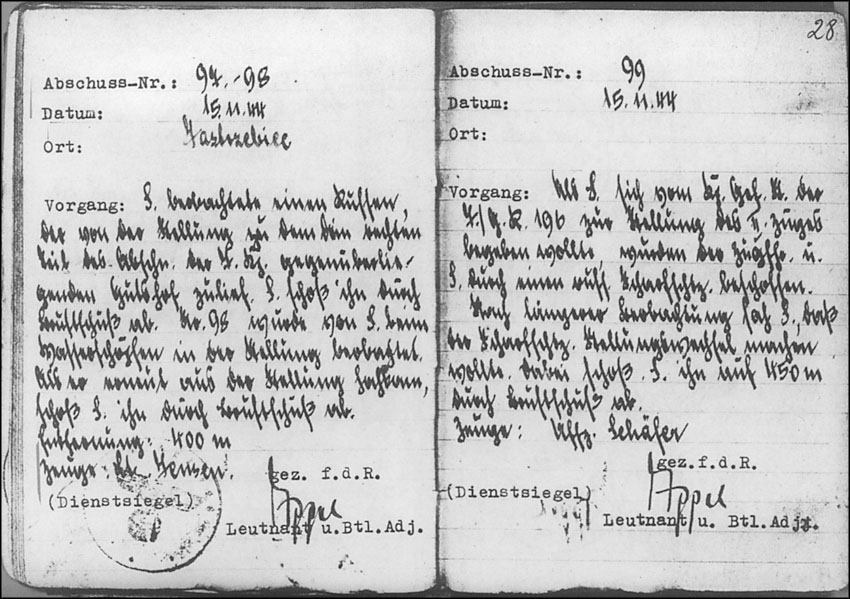 Abschuss-Nr.: 97.-98
Datum: 15.11.44
Ort: Jastrzebiec
Vorgang: S. beobachtete einen Russen,
der von der Stellung zu dem dem rechten
Teil des Abschn. der 7. Kp. gegenüberlie-
genden Gutshof zulief. S. schoß ihn durch
Brustschuß ab. No. 98 wurde von S. beim
Wasserschöpfen in der Stellung beobachtet.
Als er erneut aus der Stellung
schoß S. ihn durch Brustschuß ab.
Entfernung: 400 m
Zeuge: Lt.
(Dienstsiegel)
gez. f.d.R.
Appel
Leutnant u. Btl. Adj.
28
Abschuss-Nr.: 99
Datum: 15.11.44
Ort:
Vorgang: Als S. sich vom Kp. Gef. St. der
7./G.R. 196 zur Stellung des II. Zuges
begeben wollte wurden der Zugfhr. u.
S. durch einen russ Scharfschtz. beschossen.
Nach längerer Beobachtung sah S., daß
der Scharfschtz. Stellungswechsel machen
wollte. Dabei schoß S. ihn auf 450 m
durch Brustschuß ab.
Zeuge: Uffz. Schäfer
(Dienstsiegel)
gez. f.d.R.
Appel
Leutnant u. Btl. Adj.